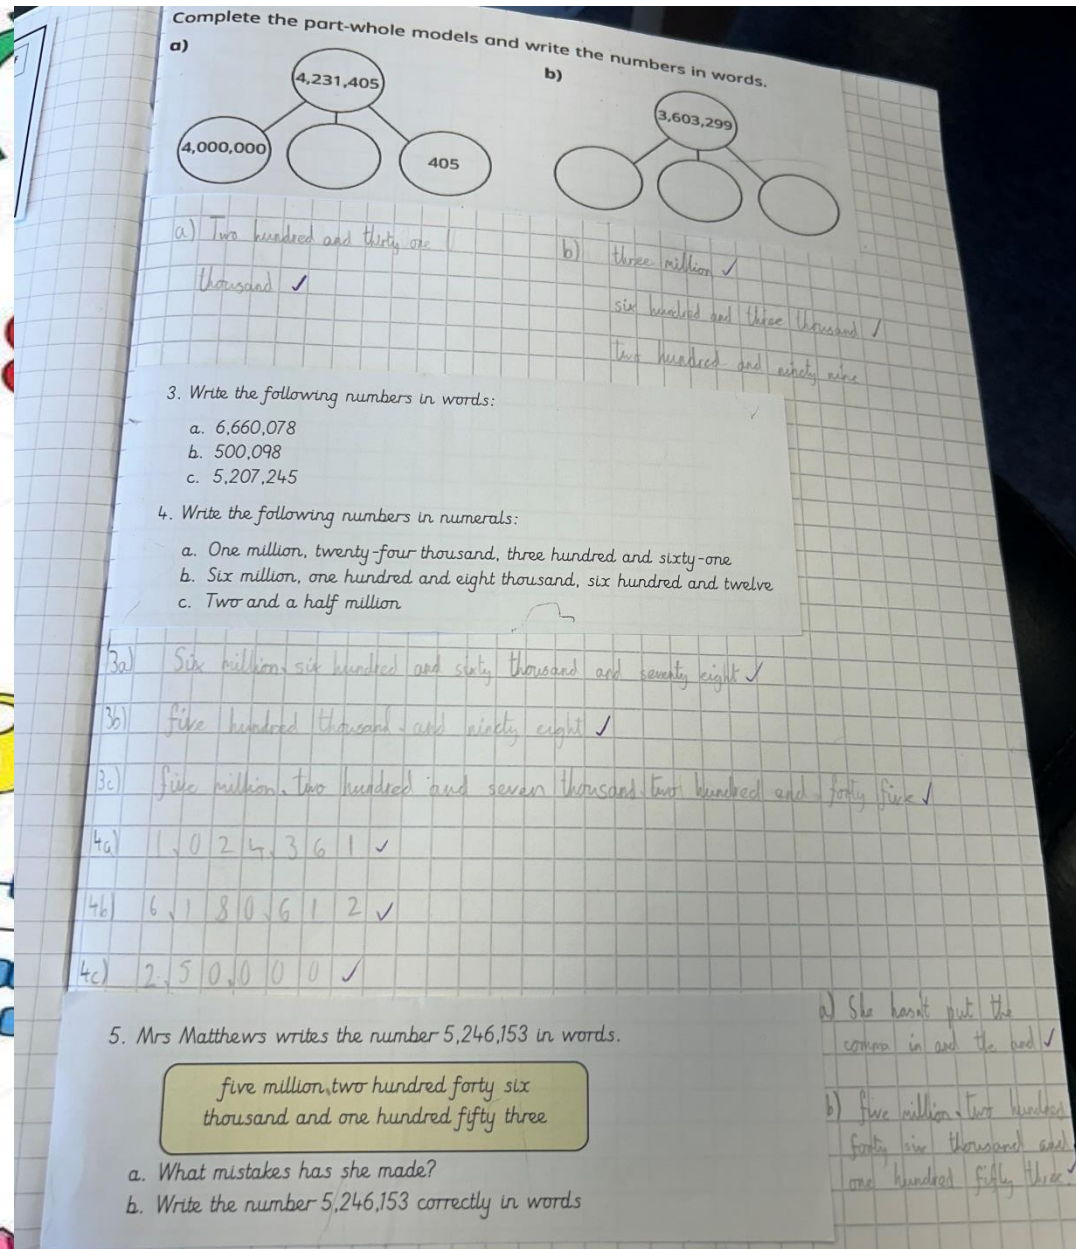 Complete the part-whole models and write the numbers in words.
a)
4,231,405
4,000,000
405
b)
3,603,299
a) Two hundred and thirty one
thousand ✓
b) three million ✓
six hundred and three thousand ✓
two hundred and ninety nine
3. Write the following numbers in words:
a. 6,660,078
b. 500,098
c. 5,207,245
4. Write the following numbers in numerals:
a. One million, twenty-four thousand, three hundred and sixty-one
b. Six million, one hundred and eight thousand, six hundred and twelve
c. Two and a half million
3a) Six million, six hundred and sixty thousand and seventy eight ✓
3b) five hundred thousand and ninety eight ✓
3c) five million, two hundred and seven thousand, two hundred and forty five ✓
4a) 1,024,361 ✓
4b) 6,180,612 ✓
4c) 2,50,000 ✓
5. Mrs Matthews writes the number 5,246,153 in words.
five million,two hundred forty six
thousand and one hundred fifty three
a. What mistakes has she made?
b. Write the number 5,246,153 correctly in words
a) She hasn't put the
comma in and the and ✓
b) five million, two hundred
forty six thousand and
one hundred fifty three ✓